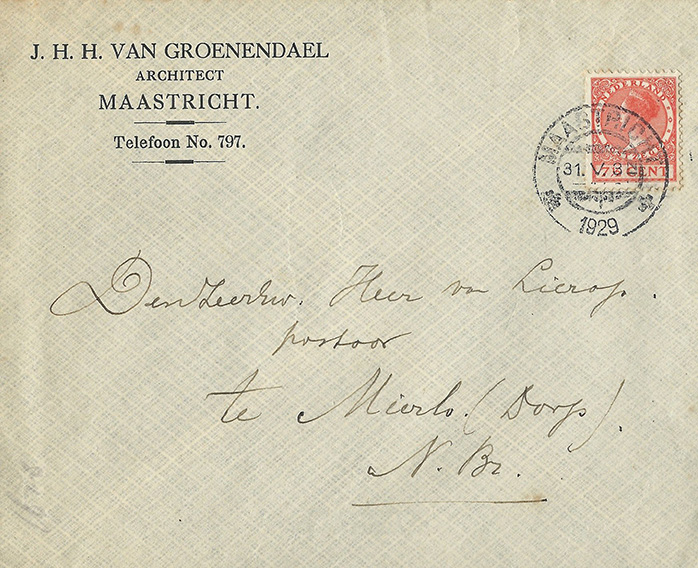 J. H. H. VAN GROENENDAEL
ARCHITECT
MAASTRICHT.
Telefoon No. 797.
NEDERLAND
CENT
MAASTRICHT
31. V.
1929
Den Zeerew. Heer van Lierop.
pastoor
te Mierlo. (Dorp).
N. Br.